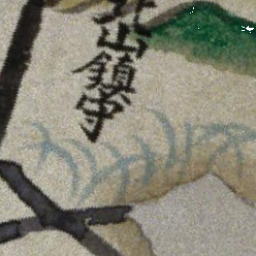 北山鎮守